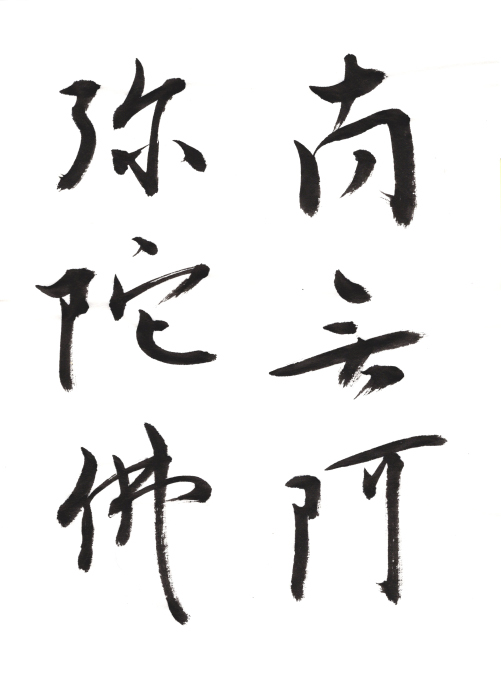 南无阿
弥陀佛